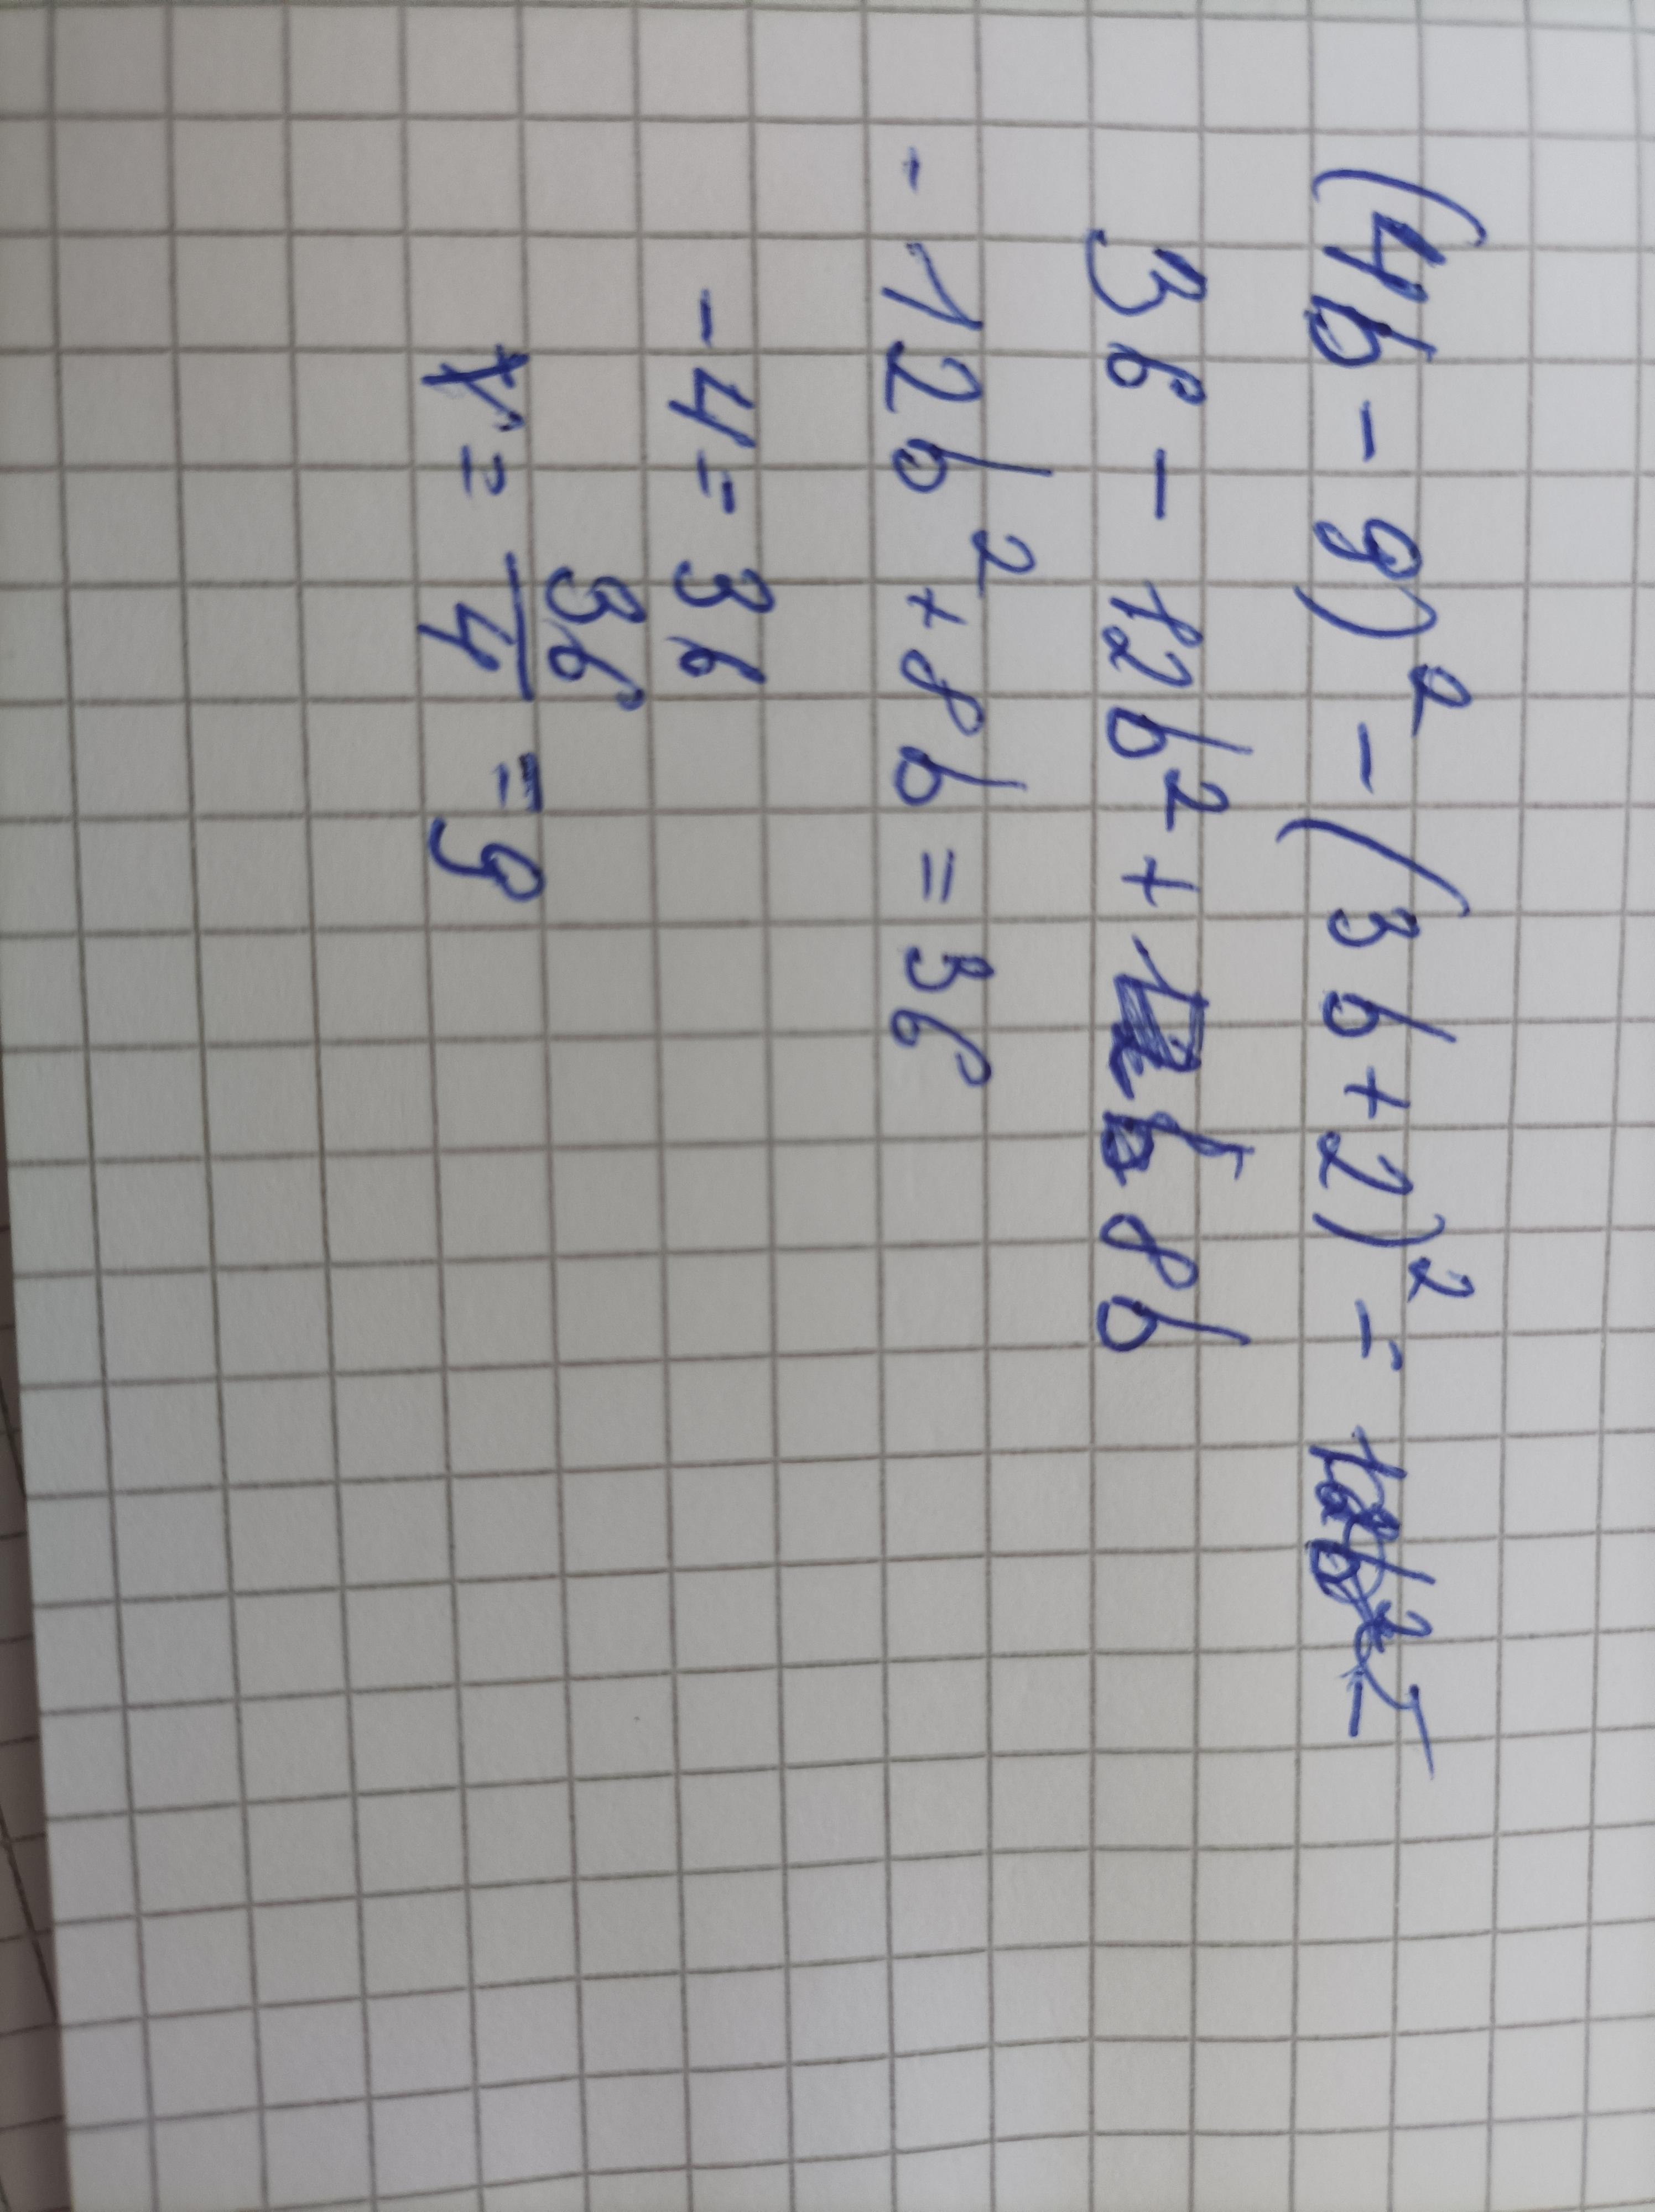 (4b - 9)² - (3b + 2)² =
36 - 12b² + 8b
- 12b² + 8b = 36
- 4 = 36
= 36/4 = 9